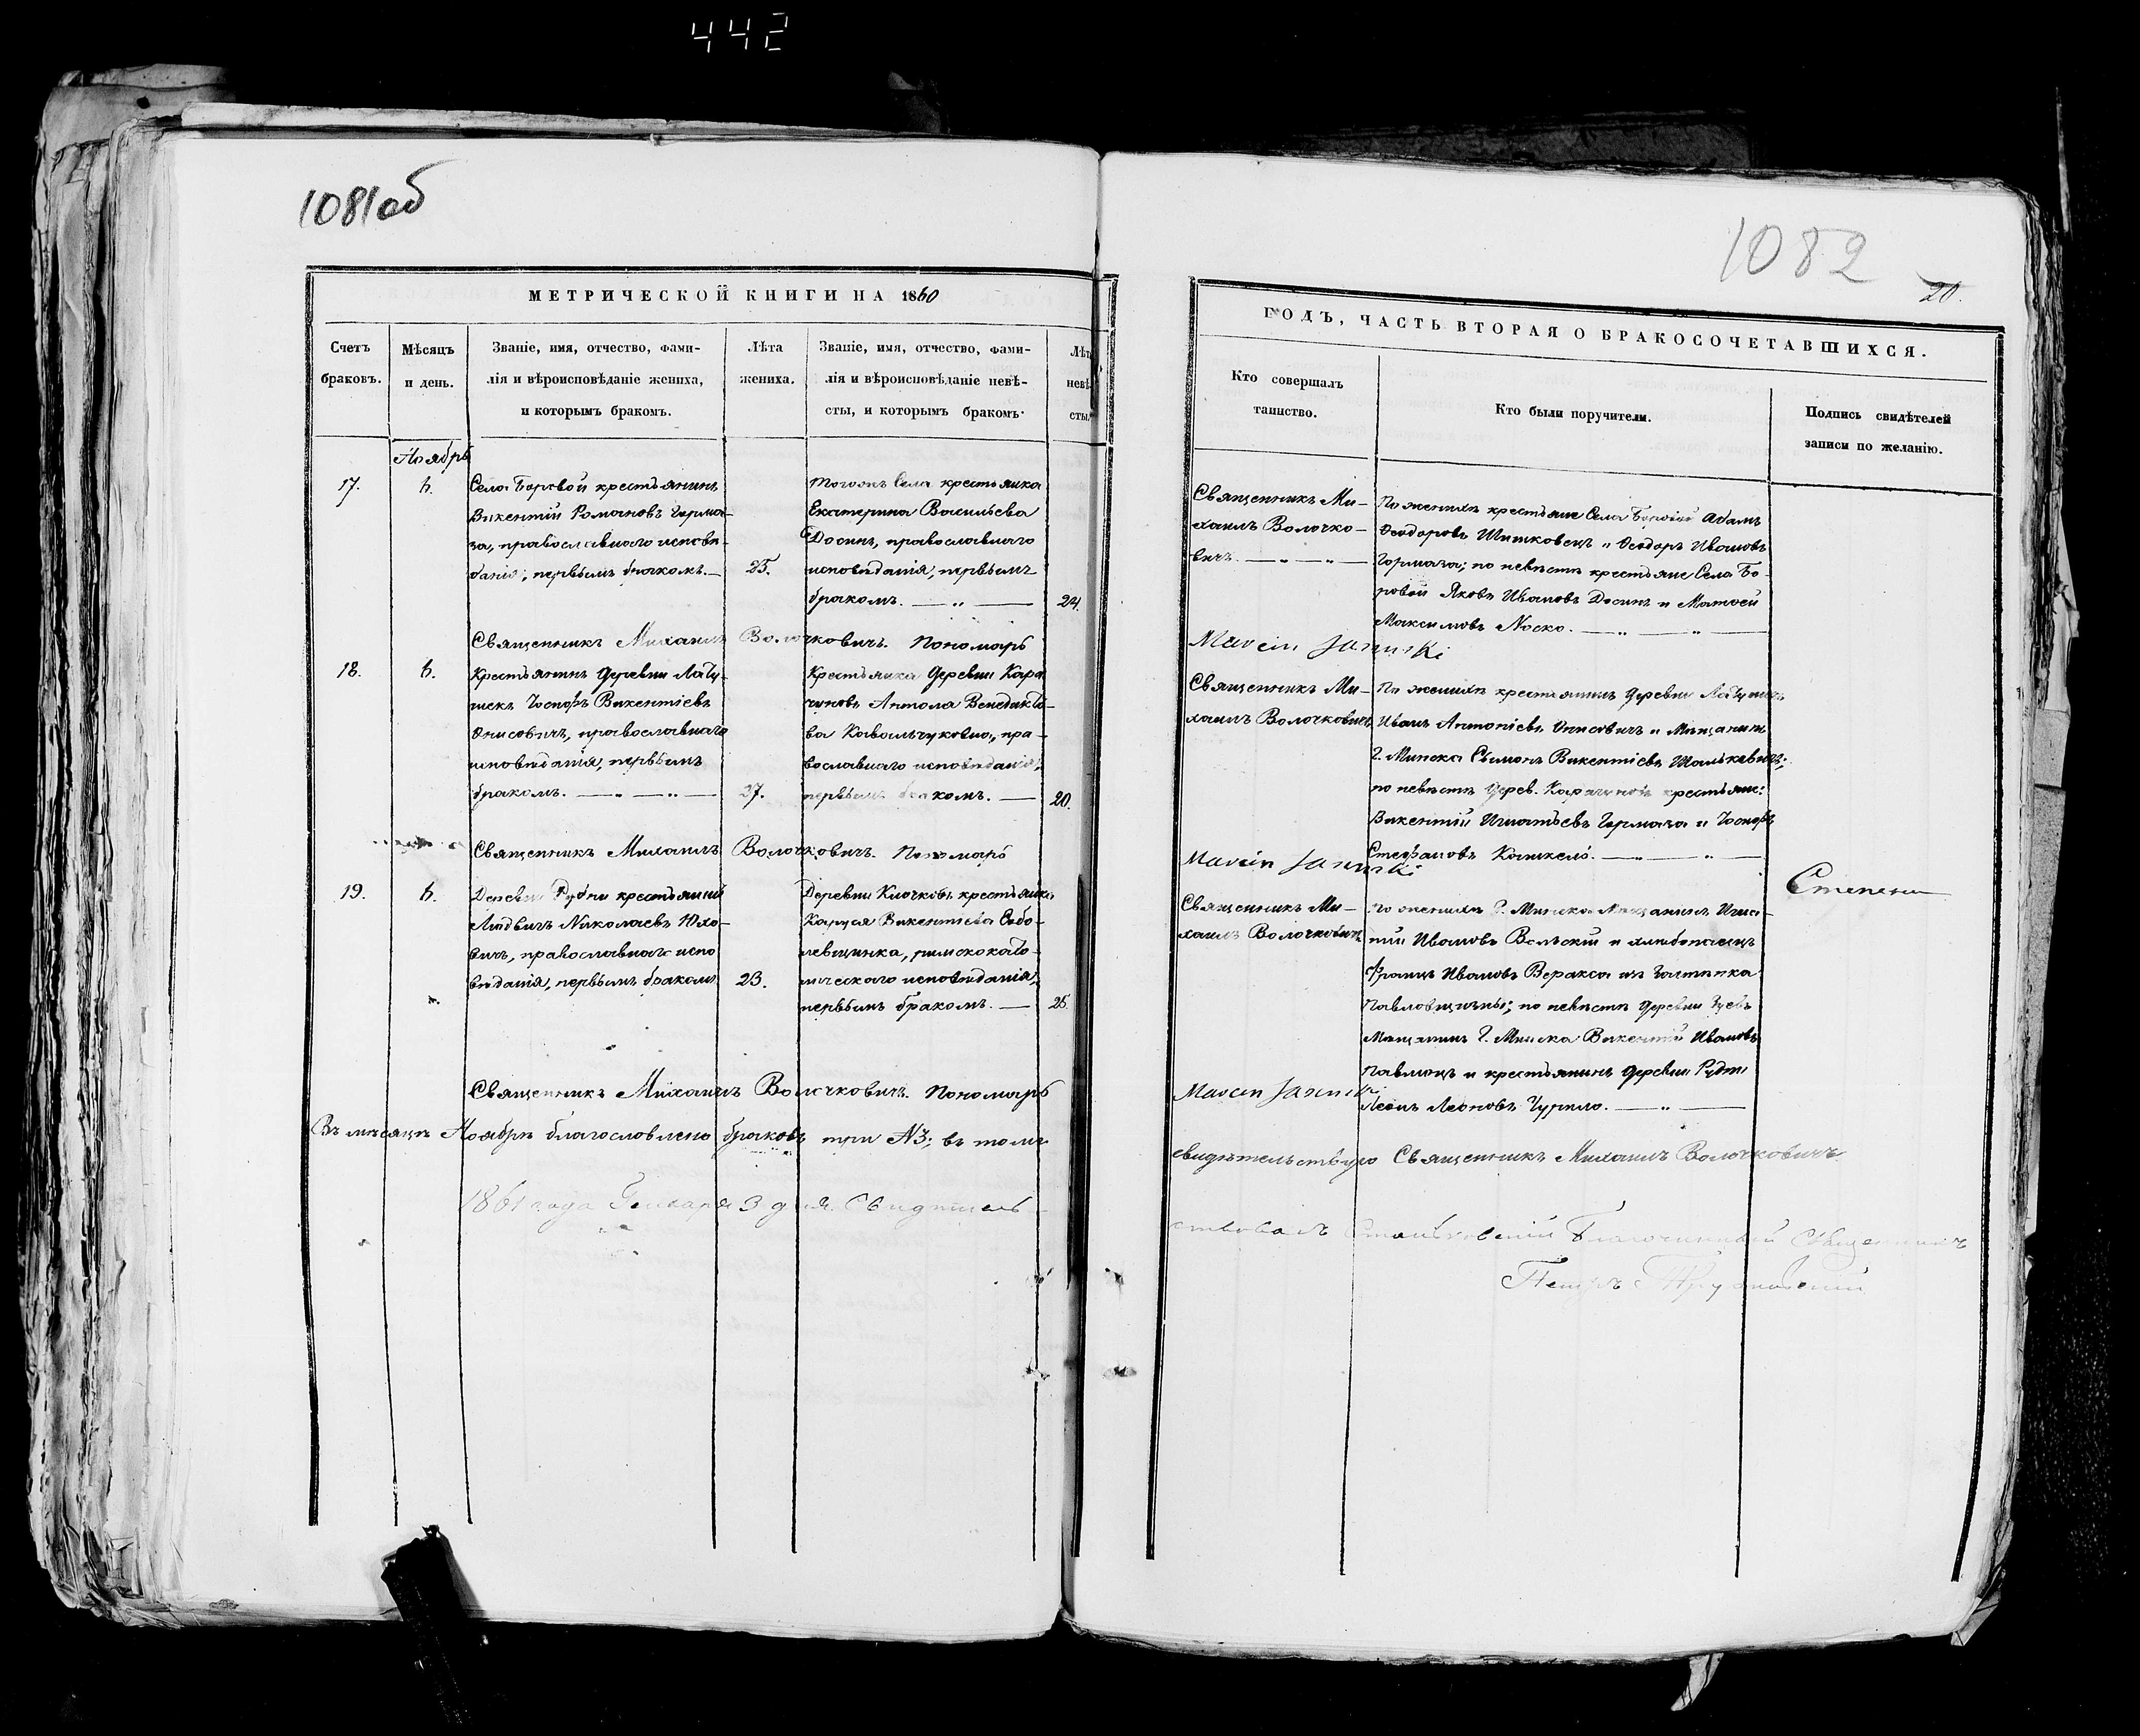 442
1081об
МЕТРИЧЕСКОЙ КНИГИ НА 1860
Счетъ браковъ.
Мѣсяцъ и день.
Званіе, имя, отчество, фами-
лія и вѣроисповѣданіе жениха,
и которымъ бракомъ.
Лѣта жениха.
Званіе, имя, отчество, фами-
лія и вѣроисповѣданіе невѣ-
сты, и которымъ бракомъ.
Лѣт
невѣ
сты.
Ноябрь
17.
6.
Села Боровой крестьянинъ
Викентій Романовъ Гярма-
за, православнаго исповѣ-
данія, первымъ бракомъ.
25.
Тогожъ Села крестьянка
Екатерина Васильева
Досинъ, православнаго
исповѣданія, первымъ
бракомъ.
24.
Священникъ Михаилъ Волочковичъ. Пономарь
18.
6.
Крестьянинъ деревни Лату-
шекъ Іосифъ Викентіевъ
Онисовичъ, православнаго
исповѣданія, первымъ
бракомъ.
27.
Крестьянка деревни Кара
чуновъ Антоля Венедикто-
ва Ковальчуковна, пра-
вославнаго исповѣданія,
первымъ бракомъ.
20.
Священникъ Михаилъ Волочковичъ. Пономарь
19.
6.
Деревни Рудни крестьянинъ
Людвигъ Николаевъ Юхо-
вичъ, православнаго испо
вѣданія, первымъ бракомъ
23.
Деревни Клочковъ крестьянка
Каруся Викентіева Собо-
левщинка, римскокато-
лическаго исповѣданія,
первымъ бракомъ.
25.
Священникъ Михаилъ Волочковичъ. Пономарь
Въ мѣсяцѣ Ноябрѣ благословлено браковъ три №3; въ томъ
1861 года Генваря 3 дня. Свидѣтель-
1082
20.
ГОДЪ, ЧАСТЬ ВТОРАЯ О БРАКОСОЧЕТАВШИХСЯ.
Кто совершалъ
таинство.
Кто были поручители.
Подпись свидѣтелей
записи по желанію.
Священникъ Ми-
хаилъ Волочко-
вичъ.
По женихѣ крестьяне Села Боровой Адамъ
Ѳеодоровъ Шишковецъ и Ѳеодоръ Ивановъ
Гормаза; по невѣстѣ крестьяне Села Бо-
ровой Яковъ Ивановъ Досинъ и Матвей
Максимовъ Носко.
Marcin Janucki
Священникъ Ми-
хаилъ Волочковичъ
По женихѣ крестьянинъ деревни Латушекъ
Иванъ Антоніевъ Онисовичъ и Мѣщанинъ
Г. Минска Сымонъ Викентіевъ
по невѣстѣ дерев. Карачуновъ крестьяне:
Викентій Игнатьевъ Гормаза и Іосифъ
Стефановъ Кашкель.
Marcin Janucki
Священникъ Ми-
хаилъ Волочковичъ
по женихѣ Г. Минска Мѣщанинъ Игна-
тій Ивановъ Вольскій и хлѣбопашецъ
Францъ Ивановъ Веракса изъ Застѣнка
Павловщизны; по невѣстѣ деревни
Мѣщанинъ Г. Минска Викентій Ивановъ
Павлюцъ и крестьянинъ деревни Рудни
Леонъ Леоновъ Чурило.
Marcin Janucki
свидѣтельствую Священникъ Михаилъ Волочковичъ
ствовалъ Станьковскій Благочинный Священникъ
Петръ